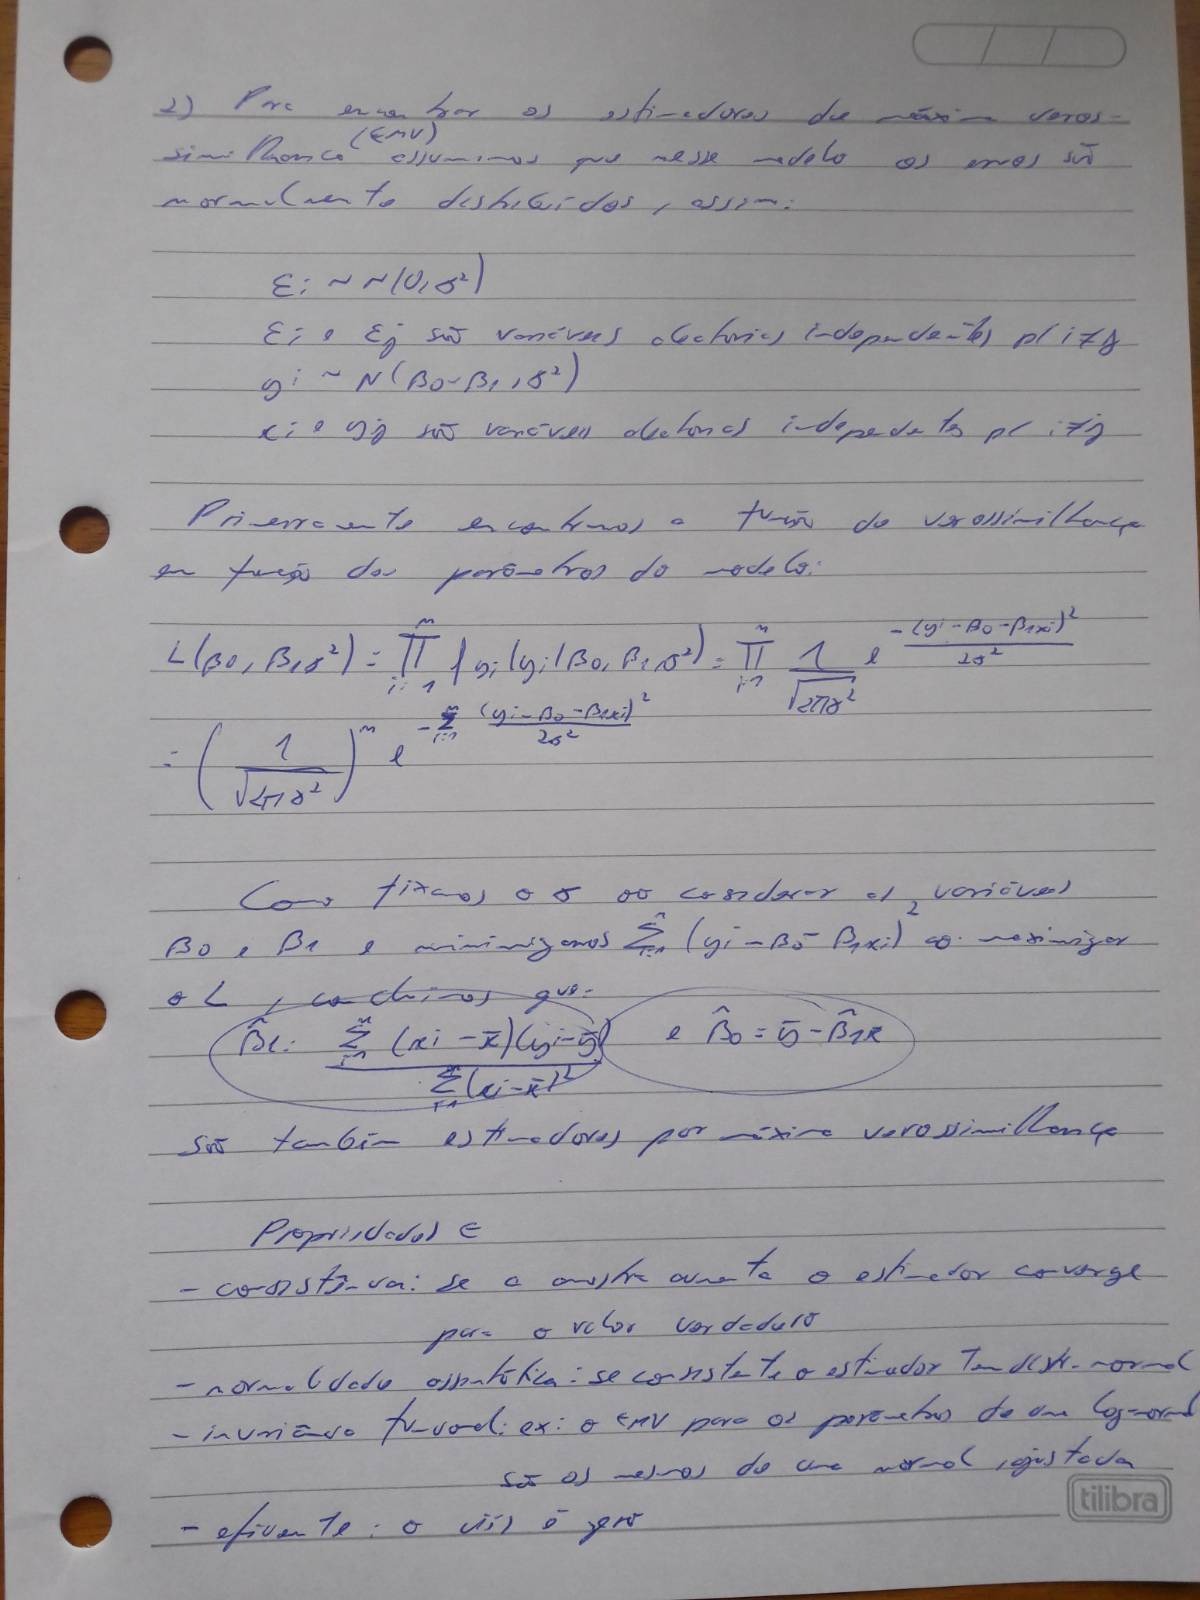 2) Para encontrar os estimadores de máxima veros-
(EMV)
similhança assumimos que nesse modelo os erros são
normalmente distribuídos, assim:
εi ~ N(0,σ²)
εi e εj são variáveis aleatorias independentes p/ i≠j
yi ~ N(β0-β1,σ²)
xi e yj são variáveis aleatorias independentes p/ i≠j
Primeiramente encontramos a função de verossimilhança
em função dos parâmetros do modelo:
L(β0,β1,σ²) = ∏_{i=1}^{n} f yi (yi/β0,β1,σ²) = ∏_{i=1}^{n} 1/√(2πσ²) e^{-(yi-β0-β1xi)²/2σ²}
= (1/√(2πσ²))^n e^{-Σ_{i=1}^{n} (yi-β0-β1xi)²/2σ²}
Como fixamos o σ ao considerar as variáveis
β0 e β1 e minimizamos Σ_{i=1}^{n} (yi-β0-β1xi)² ao maximizar
o L, concluimos que:
β̂1: Σ_{i=1}^{n} (xi-x̄)(yi-ȳ) / Σ_{i=1}^{n} (xi-x̄)² e β̂0 = ȳ-β̂1x
são também estimadores por máxima verossimilhança
Propriedades
- consistência: se a amostra aumenta o estimador converge
para o valor verdadeiro
- normalidade assintótica: se consistente o estimador tem distr. normal
- invariância funcional: ex: o EMV para os parâmetros de uma log-normal
são os mesmos de uma normal ajustada
- eficiente: o viés é zero
tilibra